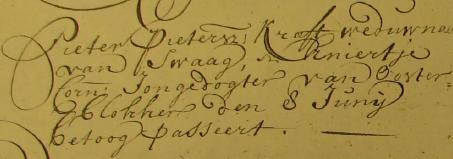 Pieter Pietersz: Kraft weduwnaar
van Swaag, en Trniertje
Corn: Jongedogter van Ooster-
Blokker den 8 Junij
betoog passeert.